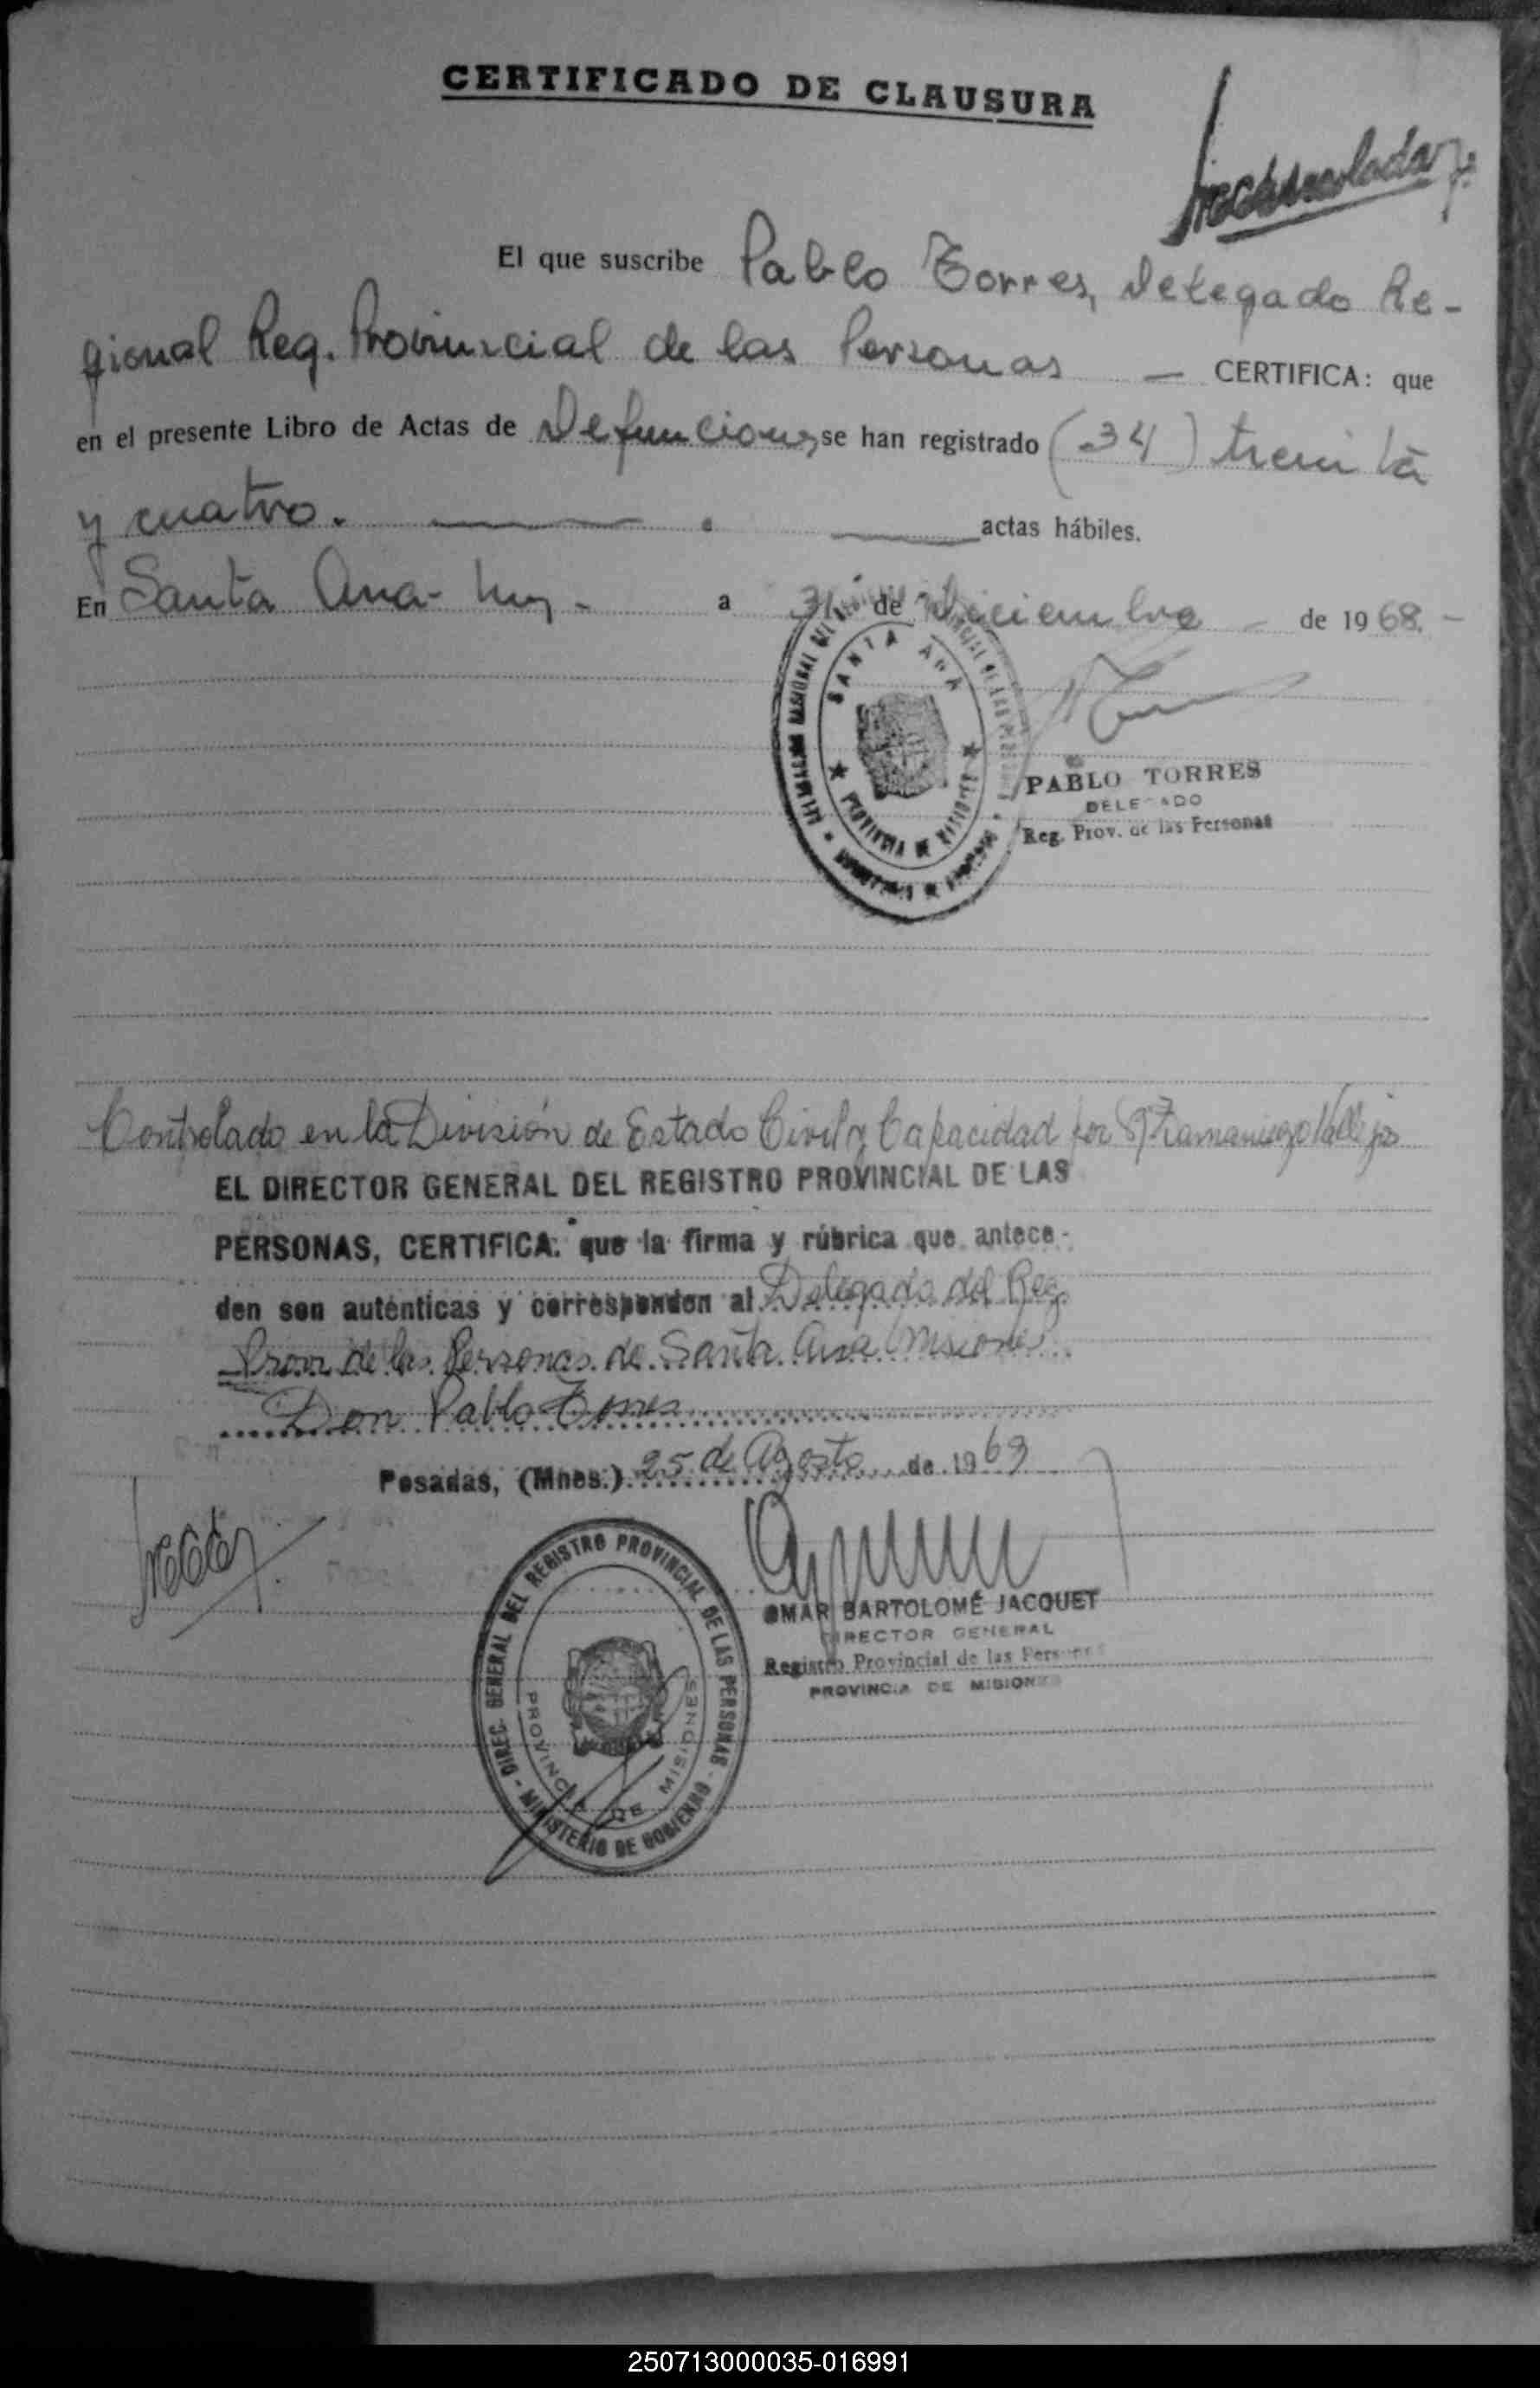 CERTIFICADO DE CLAUSURA
El que suscribe Pablo Torres, Delegado Re-
gional Reg. Provincial de las Personas — CERTIFICA: que
en el presente Libro de Actas de Defunciones se han registrado (34) treinta
y cuatro. actas hábiles.
En Santa Ana- a 31 de Diciembre de 1968.-
SANTA ANA
PROVINCIA DE MISIONES
PABLO TORRES
DELEGADO
Reg. Prov. de las Personas
Controlado en la División de Estado Civil y Capacidad por
EL DIRECTOR GENERAL DEL REGISTRO PROVINCIAL DE LAS
PERSONAS, CERTIFICA: que la firma y rúbrica que antece-
den son auténticas y corresponden al Delegado del Reg.
Prov. de las Personas de Santa Ana Misiones
Don Pablo Torres
Posadas, (Mnes.) 25 de Agosto de 1969
DIREC. GENERAL DEL REGISTRO PROVINCIAL DE LAS PERSONAS - MINISTERIO DE GOBIERNO -
PROVINCIA DE MISIONES
OMAR BARTOLOMÉ JACQUET
DIRECTOR GENERAL
Registro Provincial de las Personas
PROVINCIA DE MISIONES
250713000035-016991